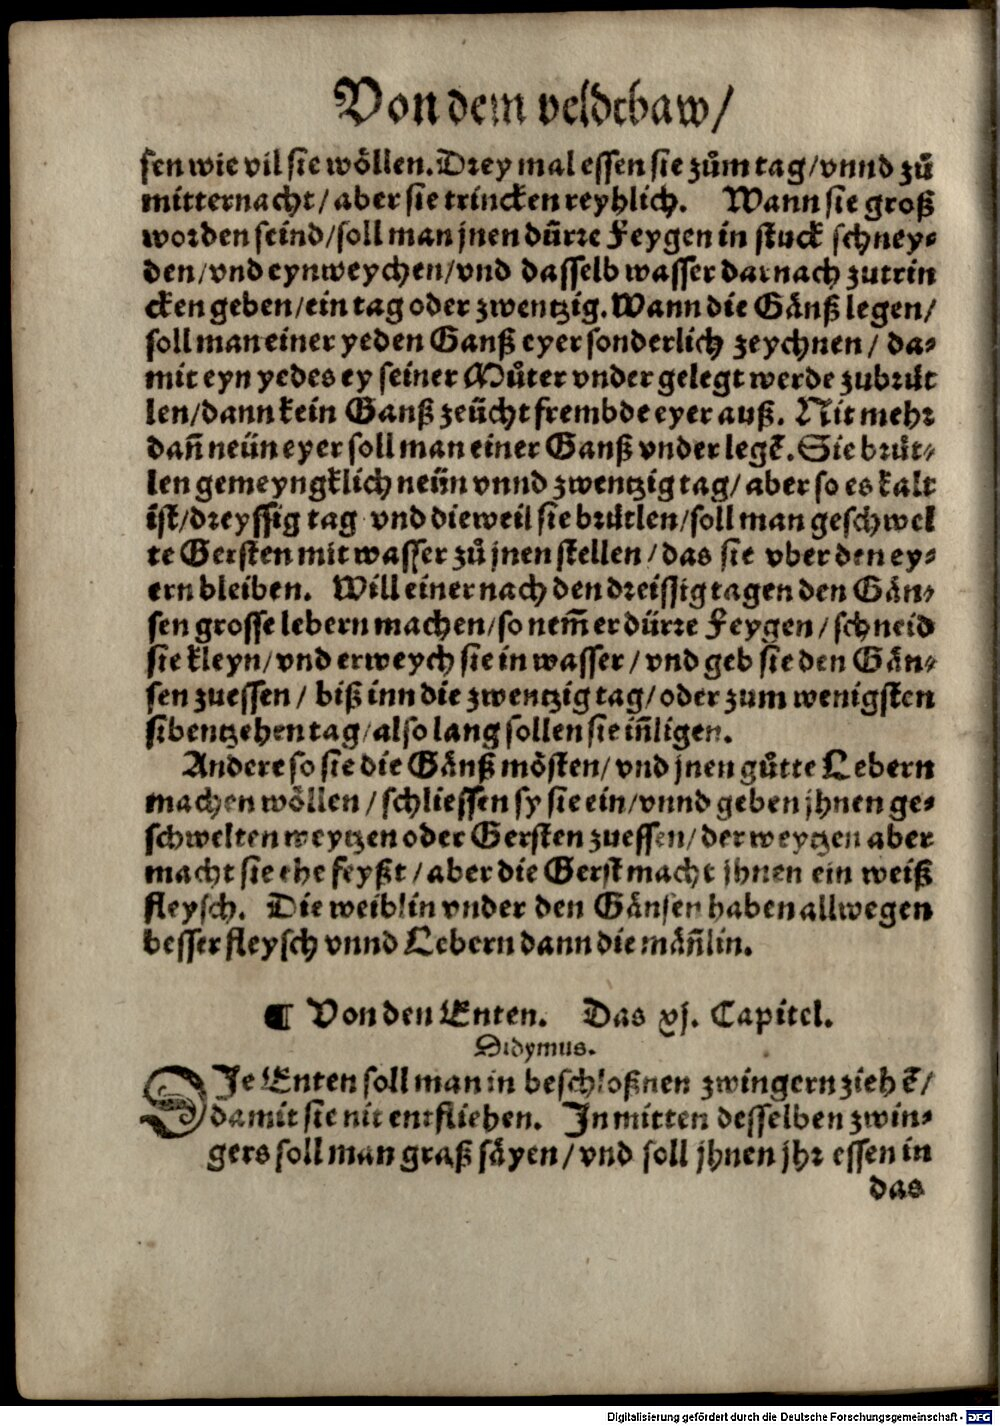 Von dem veldtbaw/
sen wie vil sie wöllen. Drey mal essen sie zům tag/vnnd zů
mitternacht/ aber sie trincken reyhlich. Wann sie groß
worden seind/soll man jnen dürre Feygen in stuck schney⸗
den/vnd eynweychen/vnd dasselb wasser darnach zutrin
cken geben/ein tag oder zwentzig. Wann die Gänß legen/
soll man einer yeden Ganß eyer sonderlich zeychnen/ da⸗
mit eyn yedes ey seiner Můter vnder gelegt werde zubrüt
len/dann kein Ganß zeücht frembde eyer auß. Nit mehr
dañ neün eyer soll man einer Ganß vnder legẽ. Sie brüt⸗
len gemeyngklich neün vnnd zwentzig tag/ aber so es kalt
ist/dreyssig tag vnd dieweil sie brütlen/soll man geschwel
te Gersten mit wasser zů jnen stellen/das sie vber den ey⸗
ern bleiben. Will einer nach den dreissig tagen den Gän⸗
sen grosse lebern machen/so nem̃ er dürre Feygen/ schneid
sie kleyn/vnd erweych sie in wasser/vnd geb sie den Gän⸗
sen zuessen/ biß inn die zwentzig tag/oder zum wenigsten
sibentzehen tag/also lang sollen sie iñligen.
Andere so sie die Gänß mösten/vnd jnen gůtte Lebern
machen wöllen/schliessen sy sie ein/vnnd geben jhnen ge⸗
schwelten weytzen oder Gersten zuessen/der weytzen aber
macht sie ehe feyßt/aber die Gerst macht jhnen ein weiß
fleysch. Die weiblin vnder den Gänsen haben allwegen
besser fleysch vnnd Lebern dann die mäñlin.
¶ Von den Enten. Das xj. Capitel.
Didymus.
DIe Enten soll man in beschloßnen zwingern ziehẽ/
damit sie nit entfliehen. In mitten desselben zwin⸗
gers soll man graß säyen/vnd soll jhnen jhr essen in
das
Digitalisierung gefördert durch die Deutsche Forschungsgemeinschaft - DFG